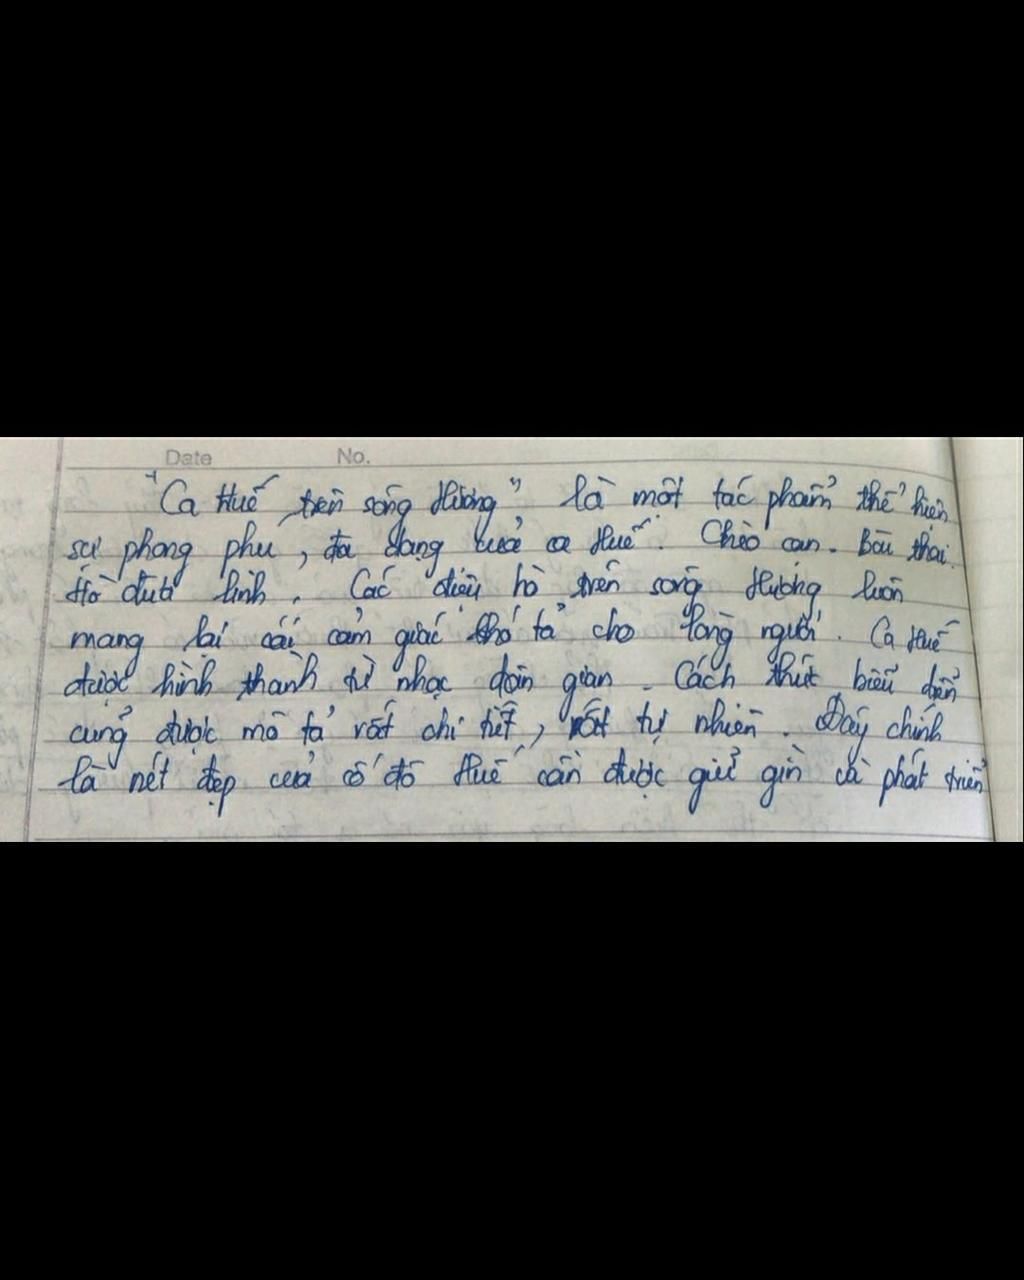 Date No.
"Ca Huế trên sông Hương" là một tác phẩm thể hiện
sự phong phu, đa dạng cuả ca Huế. Chèo can. Bài thai.
Hò đưa linh. Các điệu hò trên sông Hương luôn
mang lại cái cảm giác khó tả cho lòng người. Ca Huế
được hình thành từ nhạc dân gian. Cách thức biểu diễn
cũng được mô tả rất chi tiết, rất tự nhiên. Đây chính
là nét đẹp cuả cố đô Huế cần được giữ gìn và phát triển